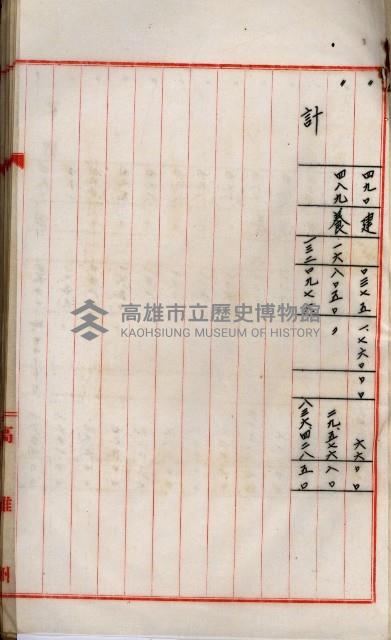 〃 四九〇 建 〇三七五 一、七六〇〇〇 六六〇〇
〃 四八九 養 一六八〇五〇 〃 二九、五七六八〇
計 一三二〇九七 八三六四二八五〇
高雄州
高雄市立歷史博物館
KAOHSIUNG MUSEUM OF HISTORY